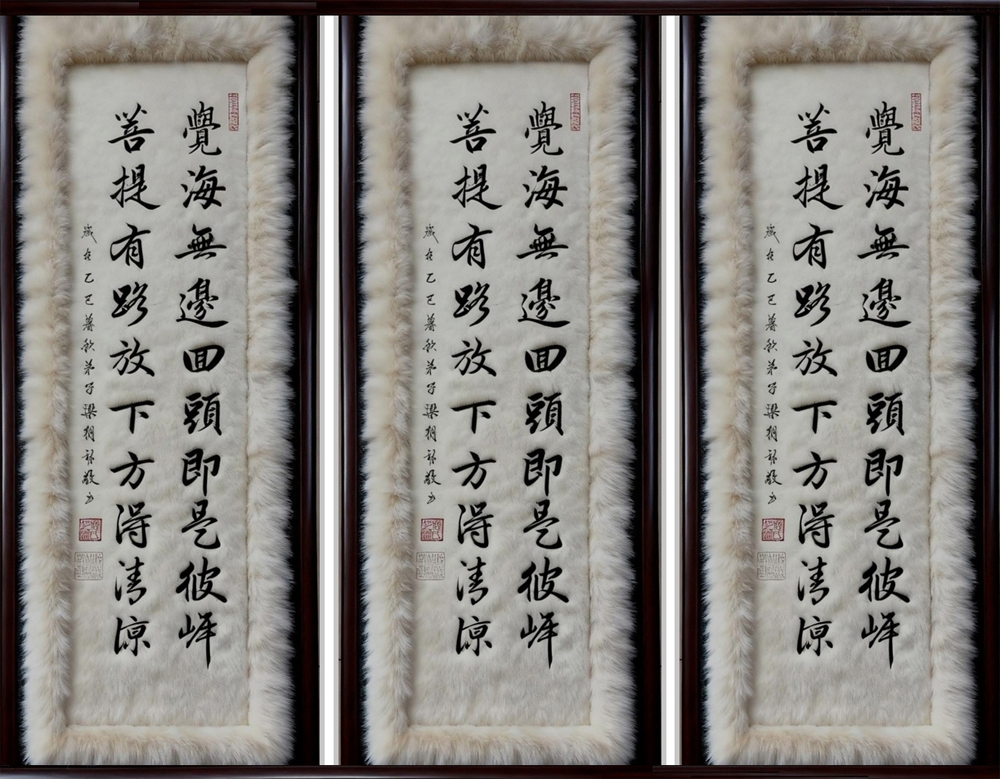 覺海無邊回頭即是彼岸
菩提有路放下方得清涼
歲在乙巳暮秋弟子梁敬書
覺海無邊回頭即是彼岸
菩提有路放下方得清涼
歲在乙巳暮秋弟子梁敬書
覺海無邊回頭即是彼岸
菩提有路放下方得清涼
歲在乙巳暮秋弟子梁敬書